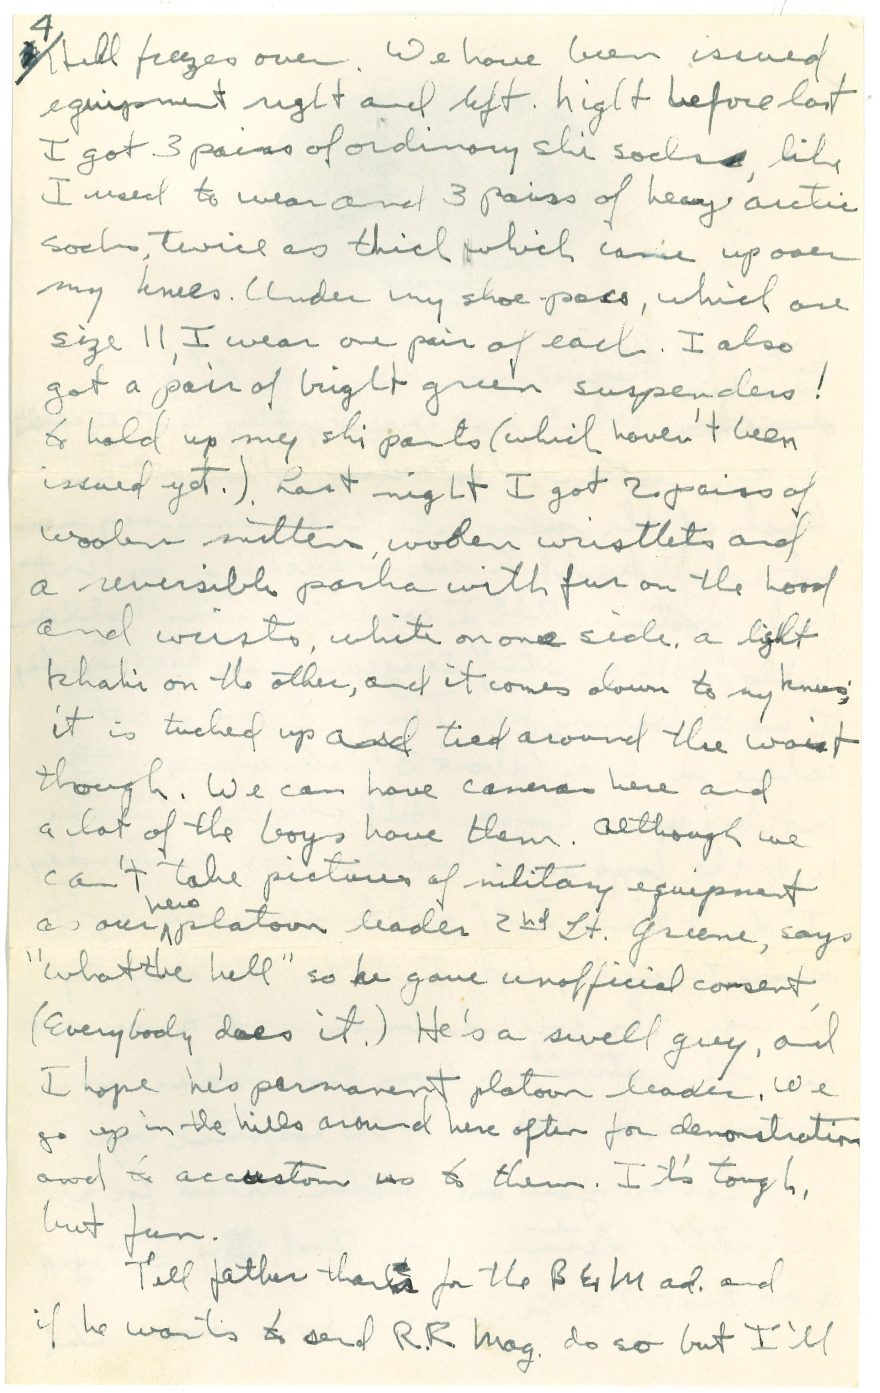 4
Hell freezes over. We have been issued
equipment right and left. Night before last
I got 3 pairs of ordinary ski socks, like
I used to wear and 3 pairs of heavy arctic
socks, twice as thick which came up over
my knees. Under my shoe-pacs, which are
size 11, I wear one pair of each. I also
got a pair of bright green suspenders!
to hold up my ski pants (which haven't been
issued yet.). Last night I got 2 pairs of
woolen mittens, woolen wristlets and
a reversible parka with fur on the hood
and wrists, white on one side, a light
khaki on the other, and it comes down to my knees;
it is tucked up and tied around the waist
though. We can have cameras here and
a lot of the boys have them. Although we
can't take pictures of military equipment
as our new platoon leader 2nd Lt. Greene, says
"what the hell" so he gave unofficial consent,
(Everybody does it.) He's a swell guy, and
I hope he's permanent platoon leader. We
go up in the hills around here often for demonstration
and to accustom us to them. It's tough,
but fun.
Tell father thanks for the B & M ad. and
if he wants to send R.R. Mag. do so but I'll